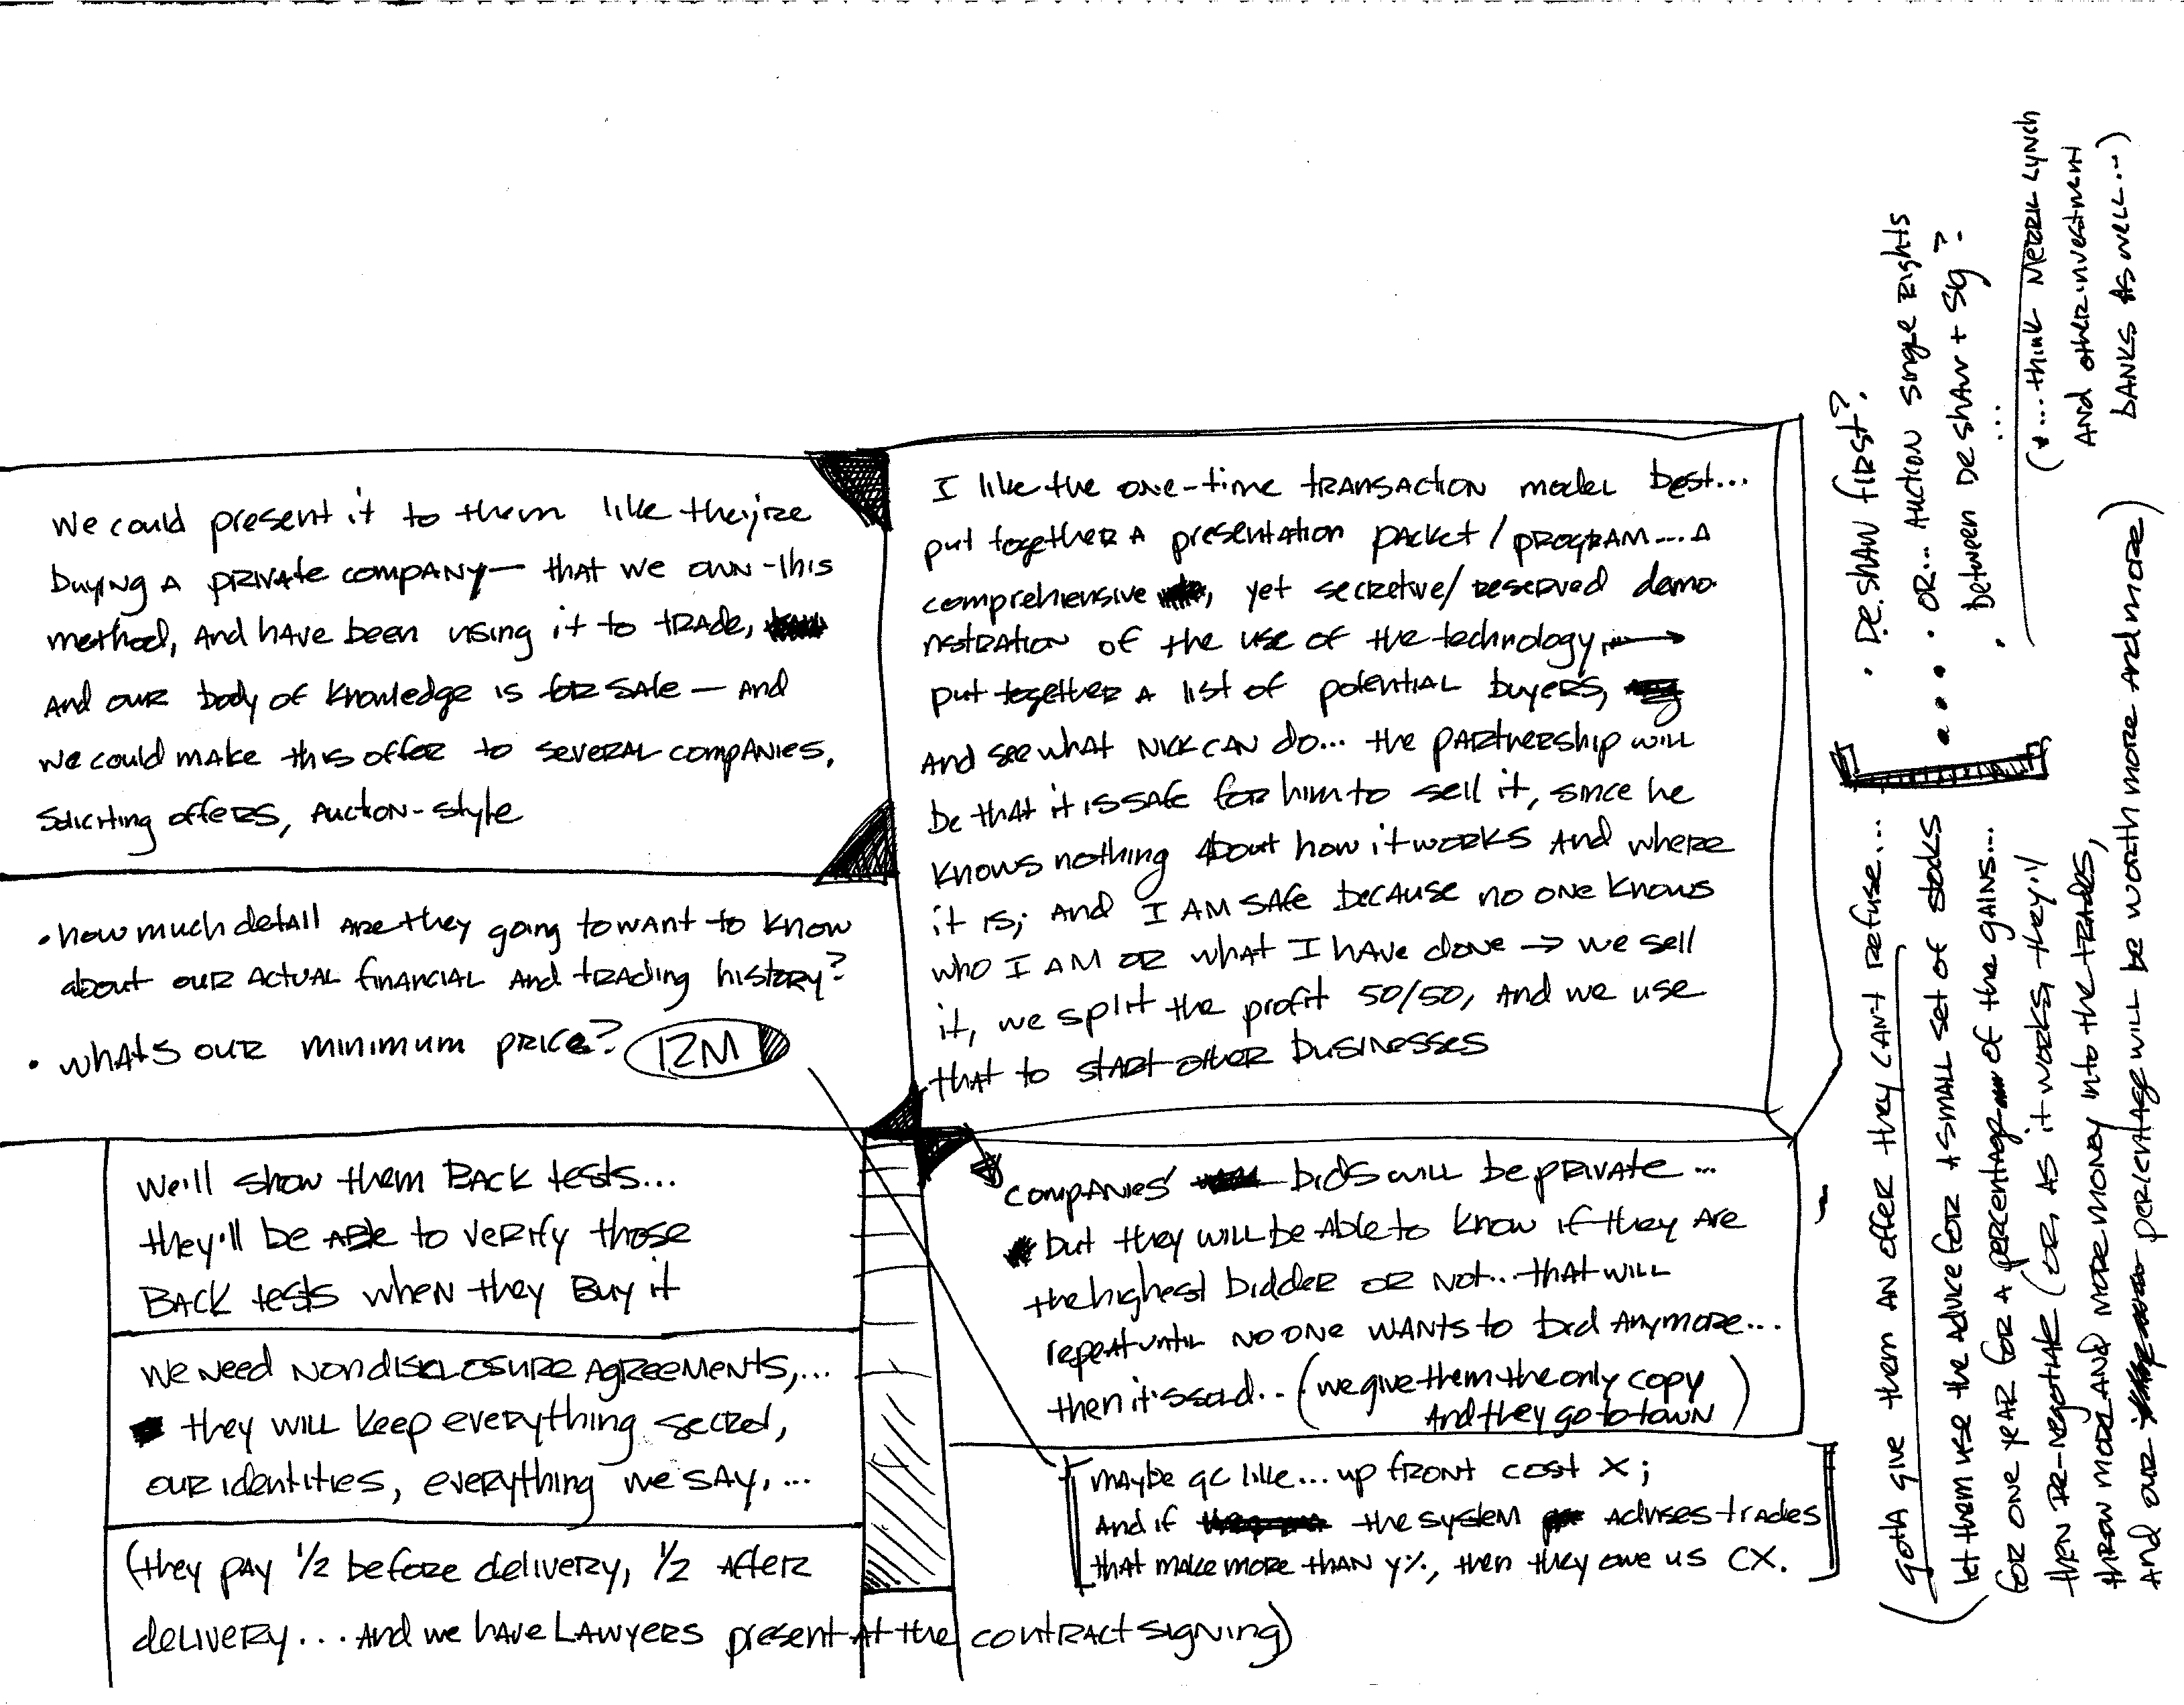 We could present it to them like they're
buying a private company — that we own this
method, and have been using it to trade,
and our body of knowledge is for sale — and
we could make this offer to several companies,
soliciting offers, auction-style
• how much detail are they going to want to know
about our actual financial and trading history?
• whats our minimum price? 12M
we'll show them back tests...
they'll be able to verify those
back tests when they buy it
we need nondisclosure agreements,...
they will keep everything secret,
our identities, everything we say,...
(they pay 1/2 before delivery, 1/2 after
delivery... and we have lawyers present at the contract signing)
I like the one-time transaction model best...
put together a presentation packet / program.... a
comprehensive, yet secretive/reserved demo
nstration of the use of the technology, →
put together a list of potential buyers,
and see what Nick can do... the partnership will
be that it is safe for him to sell it, since he
knows nothing about how it works and where
it is; and I am safe because no one knows
who I am or what I have done → we sell
it, we split the profit 50/50, and we use
that to start other businesses
companies' bids will be private...
but they will be able to know if they are
the highest bidder or not... that will
repeat until no one wants to bid anymore...
then it's sold... (we give them the only copy
and they go to town)
[maybe gc like... up front cost X;
and if the system advises trades
that make more than y%, then they owe us CX.]
• De. Shaw first?
• OR... auction single rights
between De Shaw + Sig?
• ...
(*...think Merril Lynch
and other investment
banks as well...)
(gotta give them an offer they can't refuse...
let them use the advice for a small set of stocks
for one year for a percentage of the gains...
then re-negotiate (or, as it works, they'll
throw more and more money into the trades,
and our percentage will be worth more and more)